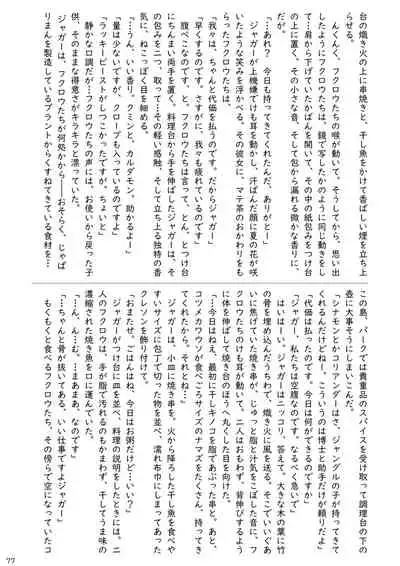 台の熾き火の上に串焼きと、干し魚をかけて香ばしい煙を立ち上
らせる。
　んくんく、フクロウたちの喉が動いて、そうしてから、思い出
したようにフクロウたちは、鏡で写したかのように同じ動きをし
て、肩から下げていたかばんを開いて、その中の紙包みをつけ台
の上に置く。その小さな音、そして包から漏れる微かな香りに、
「…あれ？　今日も持ってきてくれたんだ。ありがとー」
　ジャガーが上機嫌でけも耳を動かし、汗ばんだ顔に夏の花が咲
いたような笑みを浮かべる。その彼女に、マテ茶のおかわりをも
らったフクロウたちは、
「我々は、ちゃんと代価を払うのです。だからジャガー」
「早くするのです。さすがに、我々も疲れているのです」
　腹ぺこなのです、と、フクロウたちは言って、とん、とつけ台
にちんまい両手を置く。料理台から手を伸ばしたジャガーは、そ
の包みを二つ、取って…その軽い感触、そして立ち上る独特の香
気に、ねこっぽく目を細める。
「…うーん、いい香り。クミンと、カルダモン。助かるよー」
「量は少ないですが、クローブも入っているのですよ」
「ラッキービーストがしつこかったですが、ちょいと」
　静かな口調だが…フクロウたちの声には、お使いから戻った子
供、そのままな得意さがキラキラと漂っていた。
　ジャガーは、フクロウたちが何処から――おそらく、じゃぱ
りまんを製造しているプラントからくすねてきている食材を…
この島、パークでは貴重品のスパイスを受け取って調理台の下の
壺に大事そうにしまいこんだ。
「シナモンとかコリアンダーは、ジャングルの子が持ってきて
くれるんだけどねー。こういうのは博士と助手だけが頼りだよ」
「代価は払ったのです。今日は何ができるのですか」
「ジャガー、私たちは空腹なのです。なるべく急いで」
　はいはーい。ジャガーはニッコリ、答えて。大きな木の葉に竹
の骨を埋め込んだうちわで、熾き火に風を送る。そこでいいぐあ
いに焦げていた焼き串が、じゅっと脂と汁気をこぼした音に、フ
クロウたちのけも耳が動いて。二人はおもわず、背伸びするよう
に体を伸ばして焼き台のほうへ丸くした目を向けた。
「…今日はねえ、最初に干しキノコを脂であぶった串と。あと、
コツメカワウソが食べごろサイズのナマズをたくさん、持ってき
てくれたから。それとね…」
　ジャガーは、小皿に焼き串を。火から降ろした干し魚を食べや
すいサイズに包丁で切った物を並べ、濡れ布巾にしまってあった
クレソンを飾り付けて。
「おまたせ。ごはんはね、今日はお粥だけど…いい？」
　ジャガーがつけ台に皿を並べ、料理の説明をしたときには。二
人のフクロウは、手が脂で汚れるのもかまわず、干してうま味の
濃縮された焼き魚を口に運んでいた。
「…ん、ん…む、…まあまあ、なのです」
「…ちゃんと骨が抜いてある。いい仕事ですよジャガー」
　もくもくと食べるフクロウたち。その傍らで空になっていたコ
77